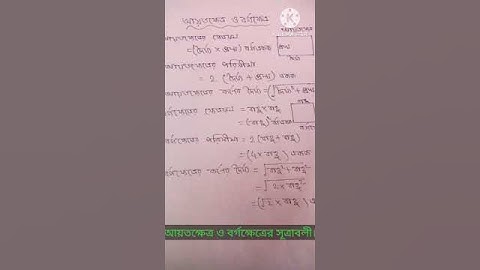 আয়তক্ষেত্র ও বর্গক্ষেত্র
আয়তক্ষেত্র
আয়তক্ষেত্রের ক্ষেত্রফল
= (দৈর্ঘ্য × প্রস্থ) বর্গএকক
প্রস্থ
দৈর্ঘ্য
আয়তক্ষেত্রের পরিসীমা
= 2 (দৈর্ঘ্য + প্রস্থ) একক
আয়তক্ষেত্রের কর্ণের দৈর্ঘ্য = (√দৈর্ঘ্য² + প্রস্থ
বর্গক্ষেত্রের ক্ষেত্রফল = বাহু × বাহু
= (বাহু)² বর্গএকক
বর্গক্ষেত্রের পরিসীমা = 2 (বাহু + বাহু)
= (4 × বাহু) একক
বর্গক্ষেত্রের কর্ণের দৈর্ঘ্য = √বাহু² + বাহু²
= √2 × বাহু²
= (√2 × বাহু) এ
আয়তক্ষেত্র ও বর্গক্ষেত্রের সূত্রাবলী।
KINEMASTER